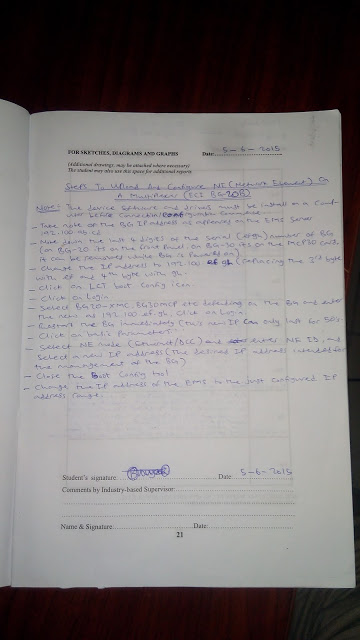 FOR SKETCHES, DIAGRAMS AND GRAPHS Date: 5-6-2015
(Additional drawings, may be attached where necessary)
The student may also use this space for additional reports
Steps To Upload And Configure NE (Network Element) On
A Multiplexer (ECI BG-20B)
Note: The device software and drivers must be install on a Comp-
uter before Connection/Configuration Commence
- Take note of the BG IP address as on the EMS Server
192.100.ab.cd
- Note down the last 4 digits of the Serial (efgh) number of BG
(on BG-20 its on the front panel on BG-30 its on the MCP30 card,
it can be removed while BG is powered on)
- Change the IP address to 192.100.ef.gh (replacing the 3rd byte
with ef and 4th byte with gh.
- Click on LCT boot Config icon.
- Click on Login
- Select BG20-XMC, BG30MCP etc depending on the BG and enter
the new as 192.100.ef.gh, Click on Login
- Restart the BG immediately (this new IP can only last for 50s).
- Click on basic Parameters
- Select NE mode (Ethernet/DCC) and enter NE ID, and
Select a new IP address (The desired IP address intended for
the management of the BG)
- Close the Boot Config tool
- Change the IP address of the EMS to the just configured IP
address range.
Student's signature Date: 5-6-2015
Comments by Industry-based Supervisor:
Name & Signature Date:
21